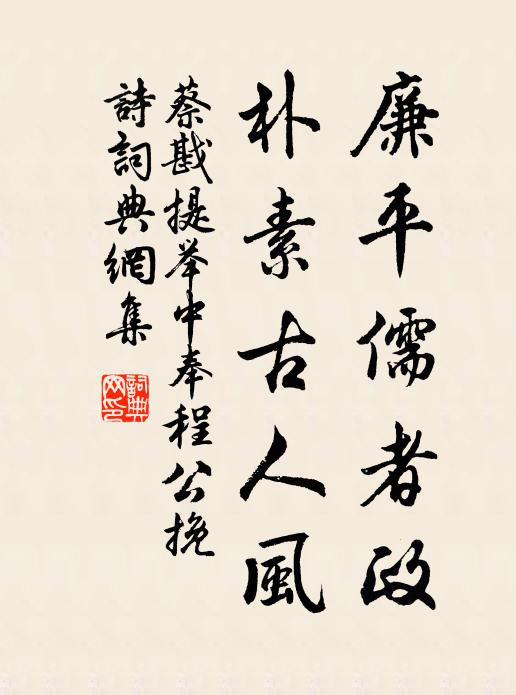 廉平儒者政
朴素古人風
蔡戡提举中奉程公挽
詩詞典網集
詞典网印